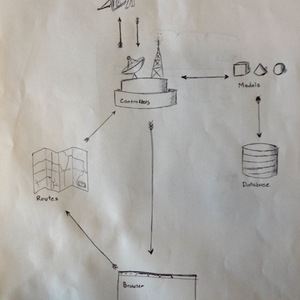 Controllers
Models
Database
Routes
Browser